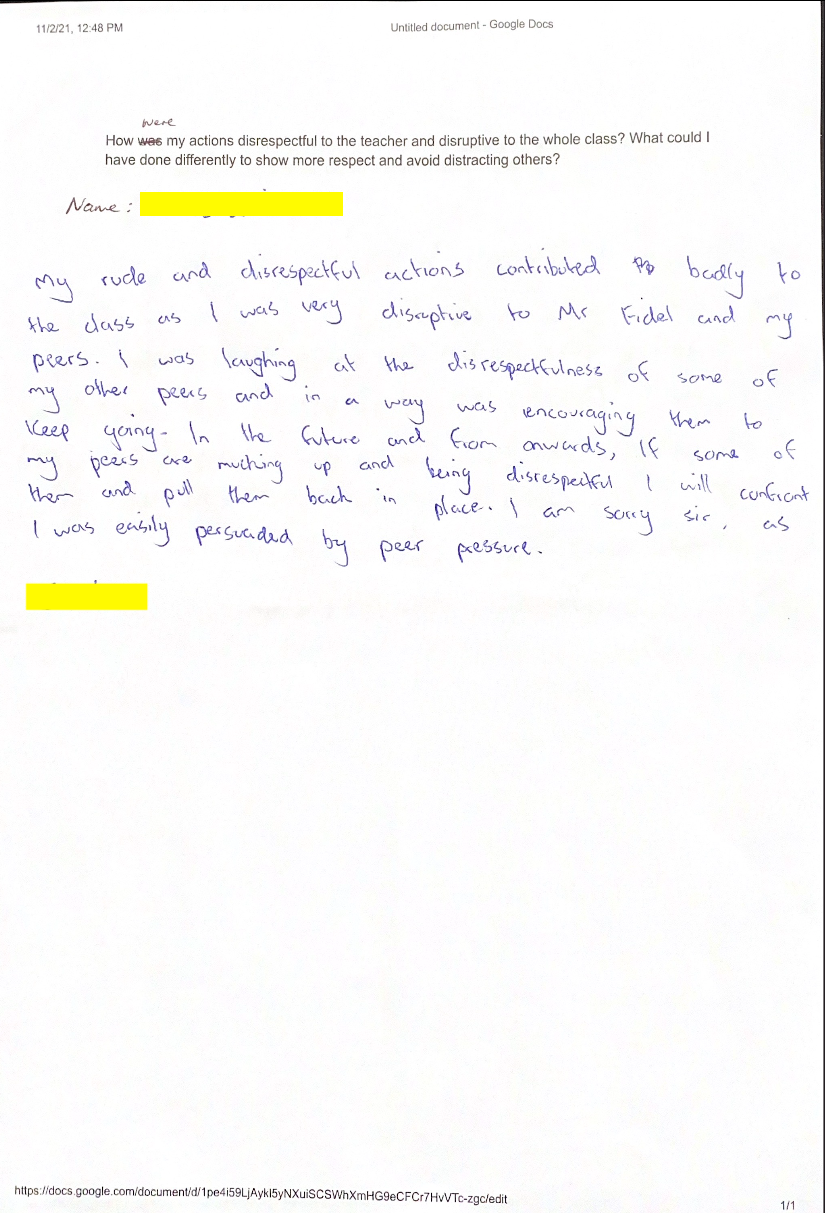 11/2/21, 12:48 PM
Untitled document - Google Docs
were
How was my actions disrespectful to the teacher and disruptive to the whole class? What could I
have done differently to show more respect and avoid distracting others?
Name :
My rude and disrespectful actions contributed badly to
the class as I was very disruptive to Mr Fidel and my
peers. I was laughing at the disrespectfulness of some of
my other peers and in a way was encouraging them to
Keep going- In the future and from onwards, If some of
my peers are muching up and being disrespectful I will confront
them and pull them back in place. I am sorry sir, as
I was easily persuaded by peer pressure.
https://docs.google.com/document/d/1pe4i59LjAykI5yNXuiSCSWhXmHG9eCFCr7HvVTc-zgc/edit
1/1